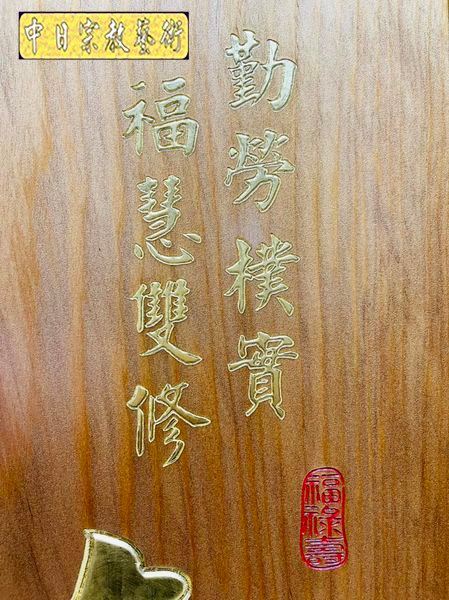 中日宗教藝術
勤勞樸實
福慧雙修
福祿壽